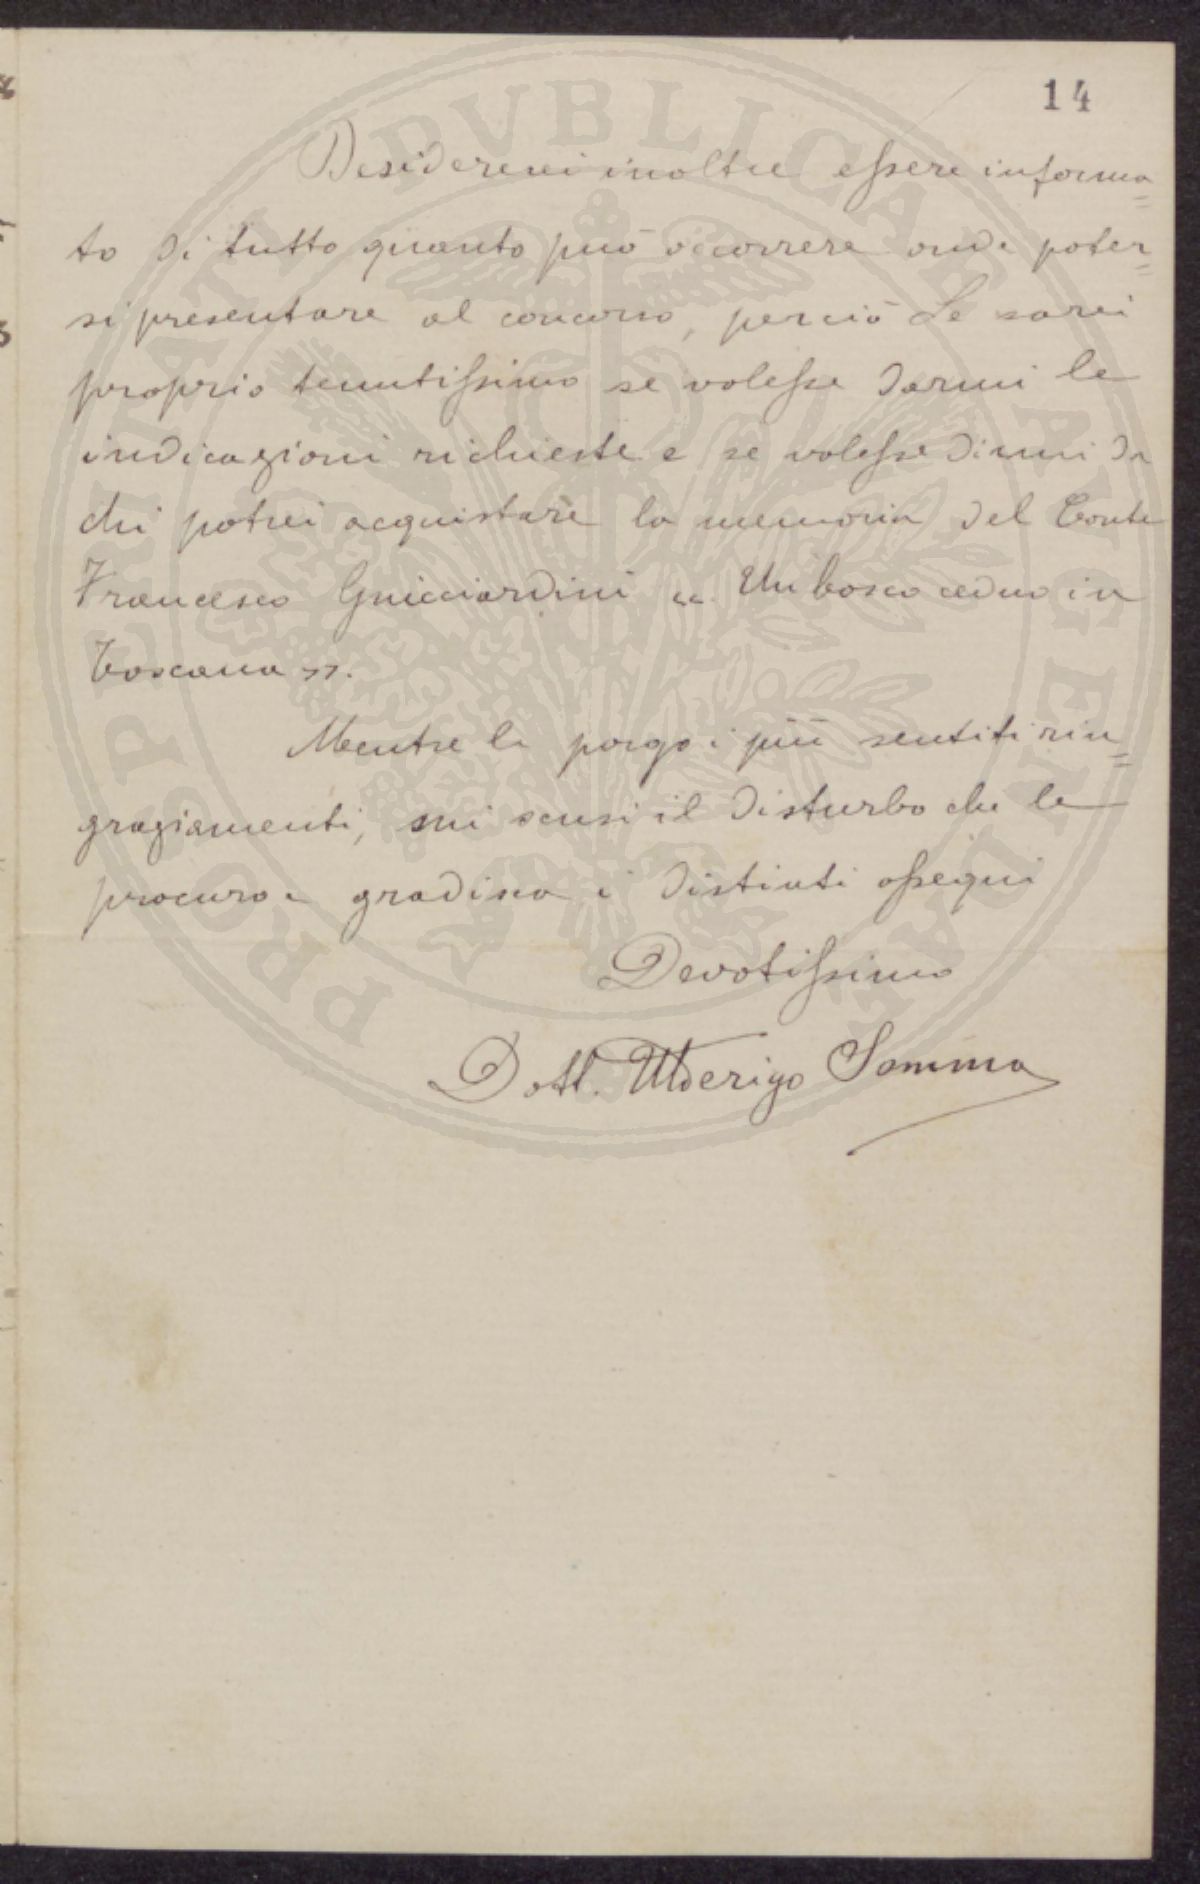 14
Desidererei inoltre essere informa=
to di tutto quanto può occorrere onde poter=
si presentare al concorso, perciò Le sarei
proprio tenutissimo se volesse darmi le
indicazioni richieste e se volesse dirmi da
chi potrei acquistare la memoria del Conte
Francesco Guicciardini " Un bosco ceduo in
Toscana ".
Mentre le porgo i più sentiti rin=
graziamenti, mi scusi il disturbo che le
procuro e gradisca i distinti ossequi
Devotissimo
Dott. Ulderigo Somma
PROSPERITATI PVBLICAE AVGENDAE